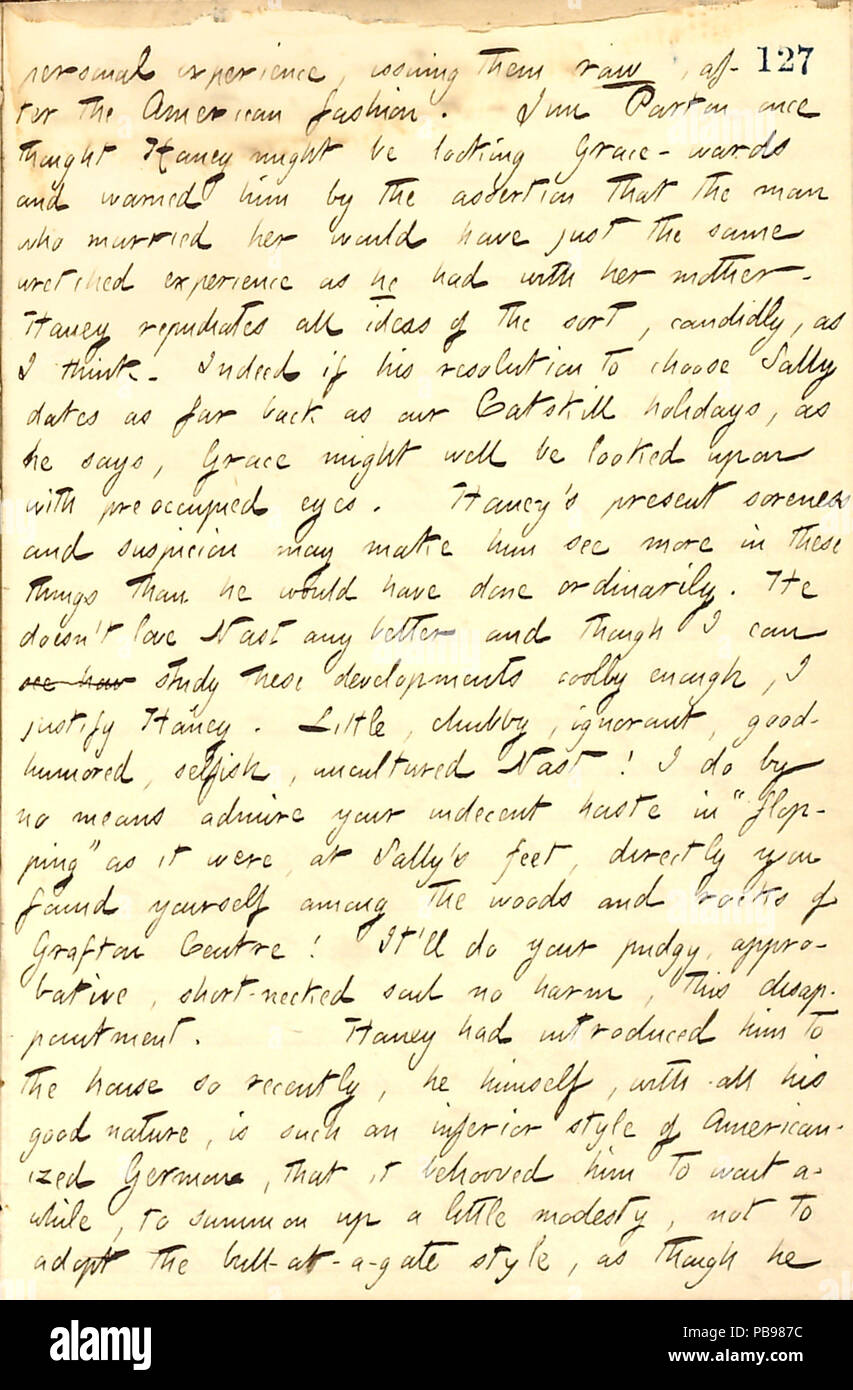 127
personal experience, issuing them raw, af-
ter the American fashion. Jim Parton once
thought Haney might be looking Grace-wards
and warned him by the assertion that the man
who married her would have just the same
wretched experience as he had with her mother.
Haney repudiates all ideas of the sort, candidly, as
I think. Indeed if his resolution to choose Sally
dates as far back as our Catskill holidays, as
he says, Grace might well be looked upon
with preoccupied eyes. Haney's present soreness
and suspicion may make him see more in these
things than he would have done ordinarily. He
doesn't love Nast any better and though I can
see how study these developments coolly enough, I
justify Haney. Little, chubby, ignorant, good-
humored, selfish, uncultured Nast! I do by
no means admire your indecent haste in "flop-
ping" as it were, at Sally's feet, directly you
found yourself among the woods and rocks of
Grafton Centre! It'll do your pudgy, appro-
bative, short-necked soul no harm, this disap-
pointment. Haney had introduced him to
the house so recently, he himself, with all his
good nature, is such an inferior style of American-
ized German, that it behooved him to wait a-
while, to summon up a little modesty, not to
adopt the bull-at-a-gate style, as though he
alamy
Image ID: PB987C
www.alamy.com